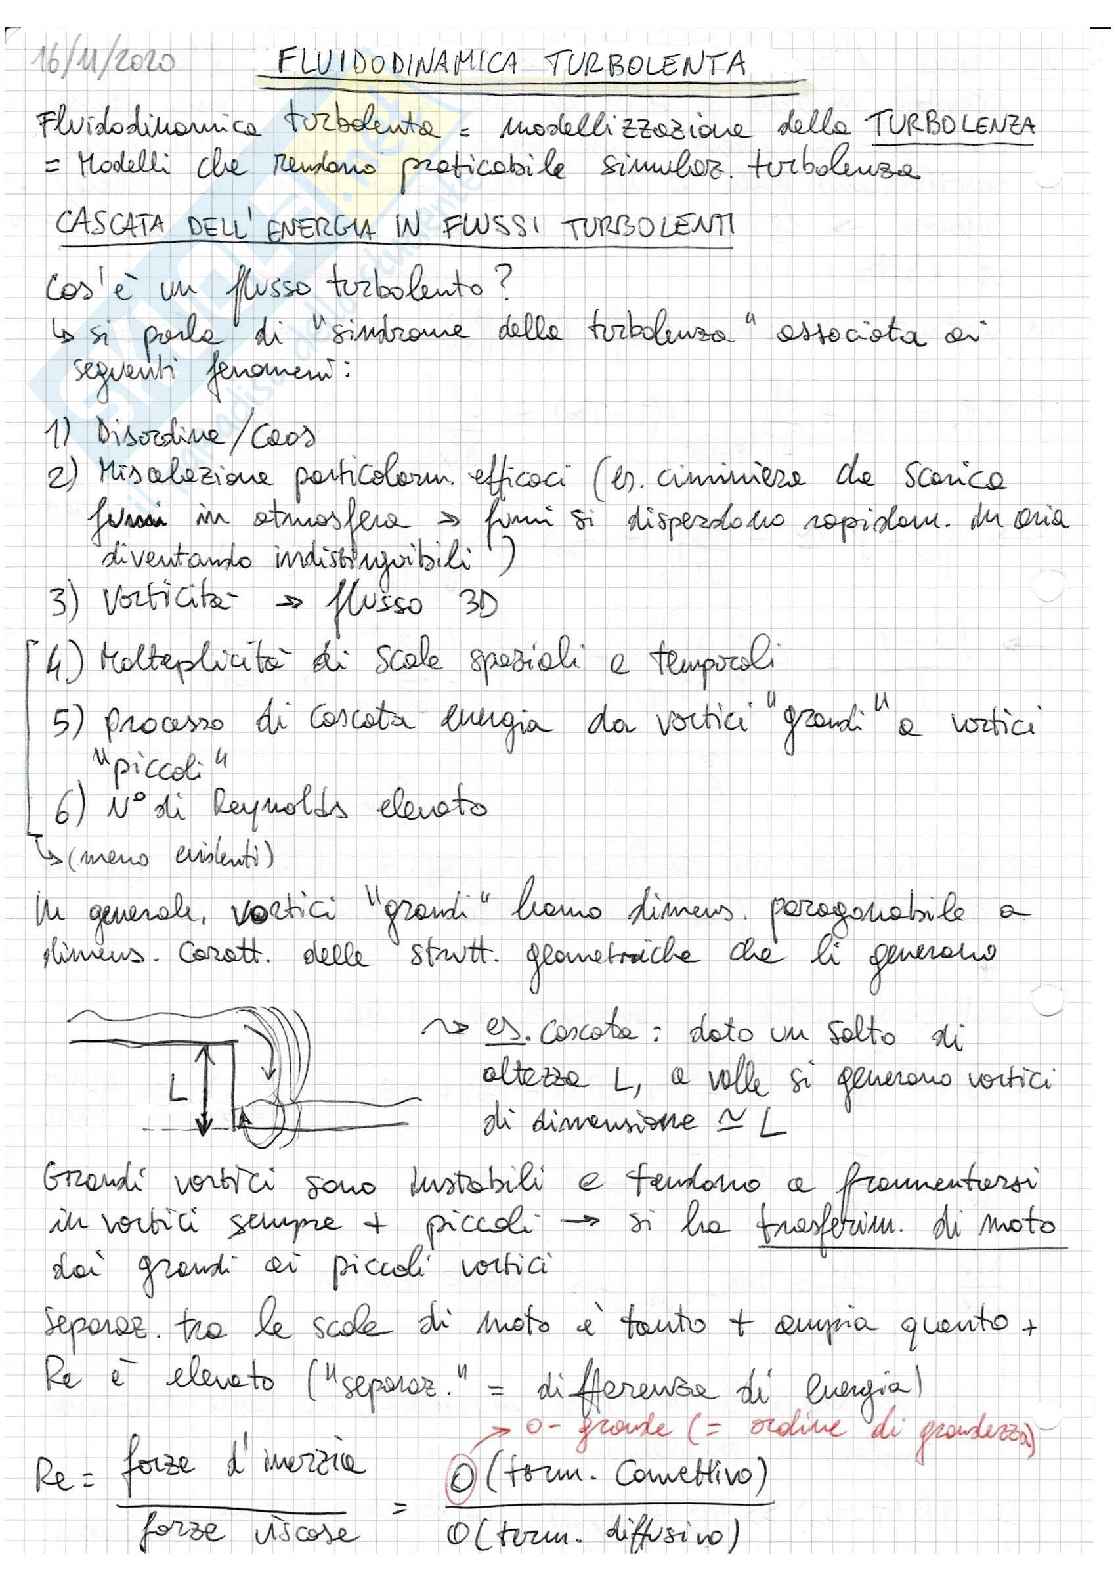 16/11/2020
FLUIDODINAMICA TURBOLENTA
Fluidodinamica turbolenta = modellizzazione della TURBOLENZA
= Modelli che rendono praticabile simulaz. turbolenza
CASCATA DELL'ENERGIA IN FLUSSI TURBOLENTI
Cos'è un flusso turbolento?
↳ si parla di "sindrome della turbolenza" associata ai
seguenti fenomeni:
1) Disordine/Caos
2) Miscelazione particolarm. efficaci (es. ciminiera che scarica
fumi in atmosfera → fumi si disperdono rapidam. in aria
diventando indistinguibili)
3) Vorticità → flusso 3D
4) Molteplicità di scale spaziali e temporali
5) processo di cascata energia da vortici "grandi" a vortici
"piccoli"
6) N° di Reynolds elevato
↳ (meno evidenti)
In generale, vortici "grandi" hanno dimens. paragonabile a
dimens. caratt. delle strutt. geometriche che li generano
~> es. cascata: dato un salto di
altezza L, a valle si generano vortici
di dimensione ≃ L
L
Grandi vortici sono instabili e tendono a frammentarsi
in vortici sempre + piccoli → si ha trasferim. di moto
dai grandi ai piccoli vortici
Separaz. tra le scale di moto è tanto + ampia quanto +
Re è elevato ("separaz." = differenza di energia)
→ o-grande (= ordine di grandezza)
Re = forze d'inerzia / forze viscose = O(term. Convettivo) / O(term. diffusivo)